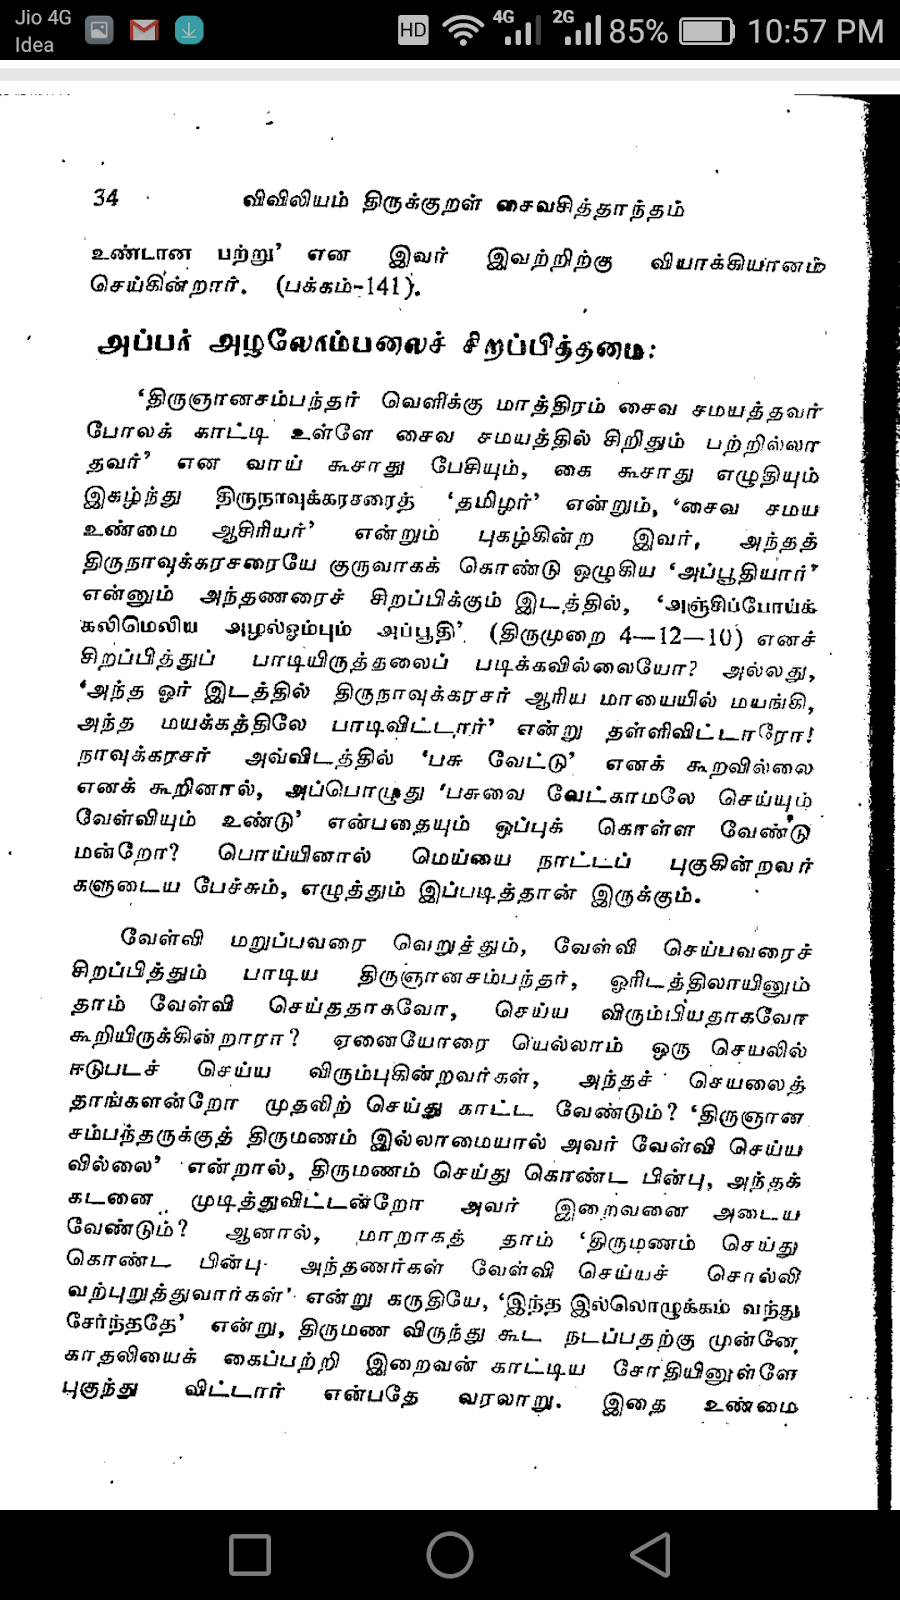 Jio 4G
Idea
HD 4G 2G 85% 10:57 PM
34 விவிலியம் திருக்குறள் சைவசித்தாந்தம்
உண்டான பற்று’ என இவர் இவற்றிற்கு வியாக்கியானம்
செய்கின்றார். (பக்கம்-141).
அப்பர் அழலோம்பலைச் சிறப்பித்தமை:
‘திருஞானசம்பந்தர் வெளிக்கு மாத்திரம் சைவ சமயத்தவர்
போலக் காட்டி உள்ளே சைவ சமயத்தில் சிறிதும் பற்றில்லா
தவர்’ என வாய் கூசாது பேசியும், கை கூசாது எழுதியும்
இகழ்ந்து திருநாவுக்கரசரைத் ‘தமிழர்’ என்றும், ‘சைவ சமய
உண்மை ஆசிரியர்’ என்றும் புகழ்கின்ற இவர், அந்தத்
திருநாவுக்கரசரையே குருவாகக் கொண்டு ஒழுகிய ‘அப்பூதியார்’
என்னும் அந்தணரைச் சிறப்பிக்கும் இடத்தில், ‘அஞ்சிப்போய்க்
கலிமெலிய அழல்ஓம்பும் அப்பூதி’ (திருமுறை 4—12—10) எனச்
சிறப்பித்துப் பாடியிருத்தலைப் படிக்கவில்லையோ? அல்லது,
‘அந்த ஓர் இடத்தில் திருநாவுக்கரசர் ஆரிய மாயையில் மயங்கி,
அந்த மயக்கத்திலே பாடிவிட்டார்’ என்று தள்ளிவிட்டாரோ!
நாவுக்கரசர் அவ்விடத்தில் ‘பசு வேட்டு’ எனக் கூறவில்லை
எனக் கூறினால், அப்பொழுது ‘பசுவை வேட்காமலே செய்யும்
வேள்வியும் உண்டு’ என்பதையும் ஒப்புக் கொள்ள வேண்டு
மன்றோ? பொய்யினால் மெய்யை நாட்டப் புகுகின்றவர்
களுடைய பேச்சும், எழுத்தும் இப்படித்தான் இருக்கும்.
வேள்வி மறுப்பவரை வெறுத்தும், வேள்வி செய்பவரைச்
சிறப்பித்தும் பாடிய திருஞானசம்பந்தர், ஓரிடத்திலாயினும்
தாம் வேள்வி செய்ததாகவோ, செய்ய விரும்பியதாகவோ
கூறியிருக்கின்றாரா? ஏனையோரை யெல்லாம் ஒரு செயலில்
ஈடுபடச் செய்ய விரும்புகின்றவர்கள், அந்தச் செயலைத்
தாங்களன்றோ முதலிற் செய்து காட்ட வேண்டும்? ‘திருஞான
சம்பந்தருக்குத் திருமணம் இல்லாமையால் அவர் வேள்வி செய்ய
வில்லை’ என்றால், திருமணம் செய்து கொண்ட பின்பு, அந்தக்
கடனை முடித்துவிட்டன்றோ அவர் இறைவனை அடைய
வேண்டும்? ஆனால், மாறாகத் தாம் ‘திருமணம் செய்து
கொண்ட பின்பு அந்தணர்கள் வேள்வி செய்யச் சொல்லி
வற்புறுத்துவார்கள்’ என்று கருதியே, ‘இந்த இல்லொழுக்கம் வந்து
சேர்ந்ததே’ என்று, திருமண விருந்து கூட நடப்பதற்கு முன்னே
காதலியைக் கைப்பற்றி இறைவன் காட்டிய சோதியினுள்ளே
புகுந்து விட்டார் என்பதே வரலாறு. இதை உண்மை